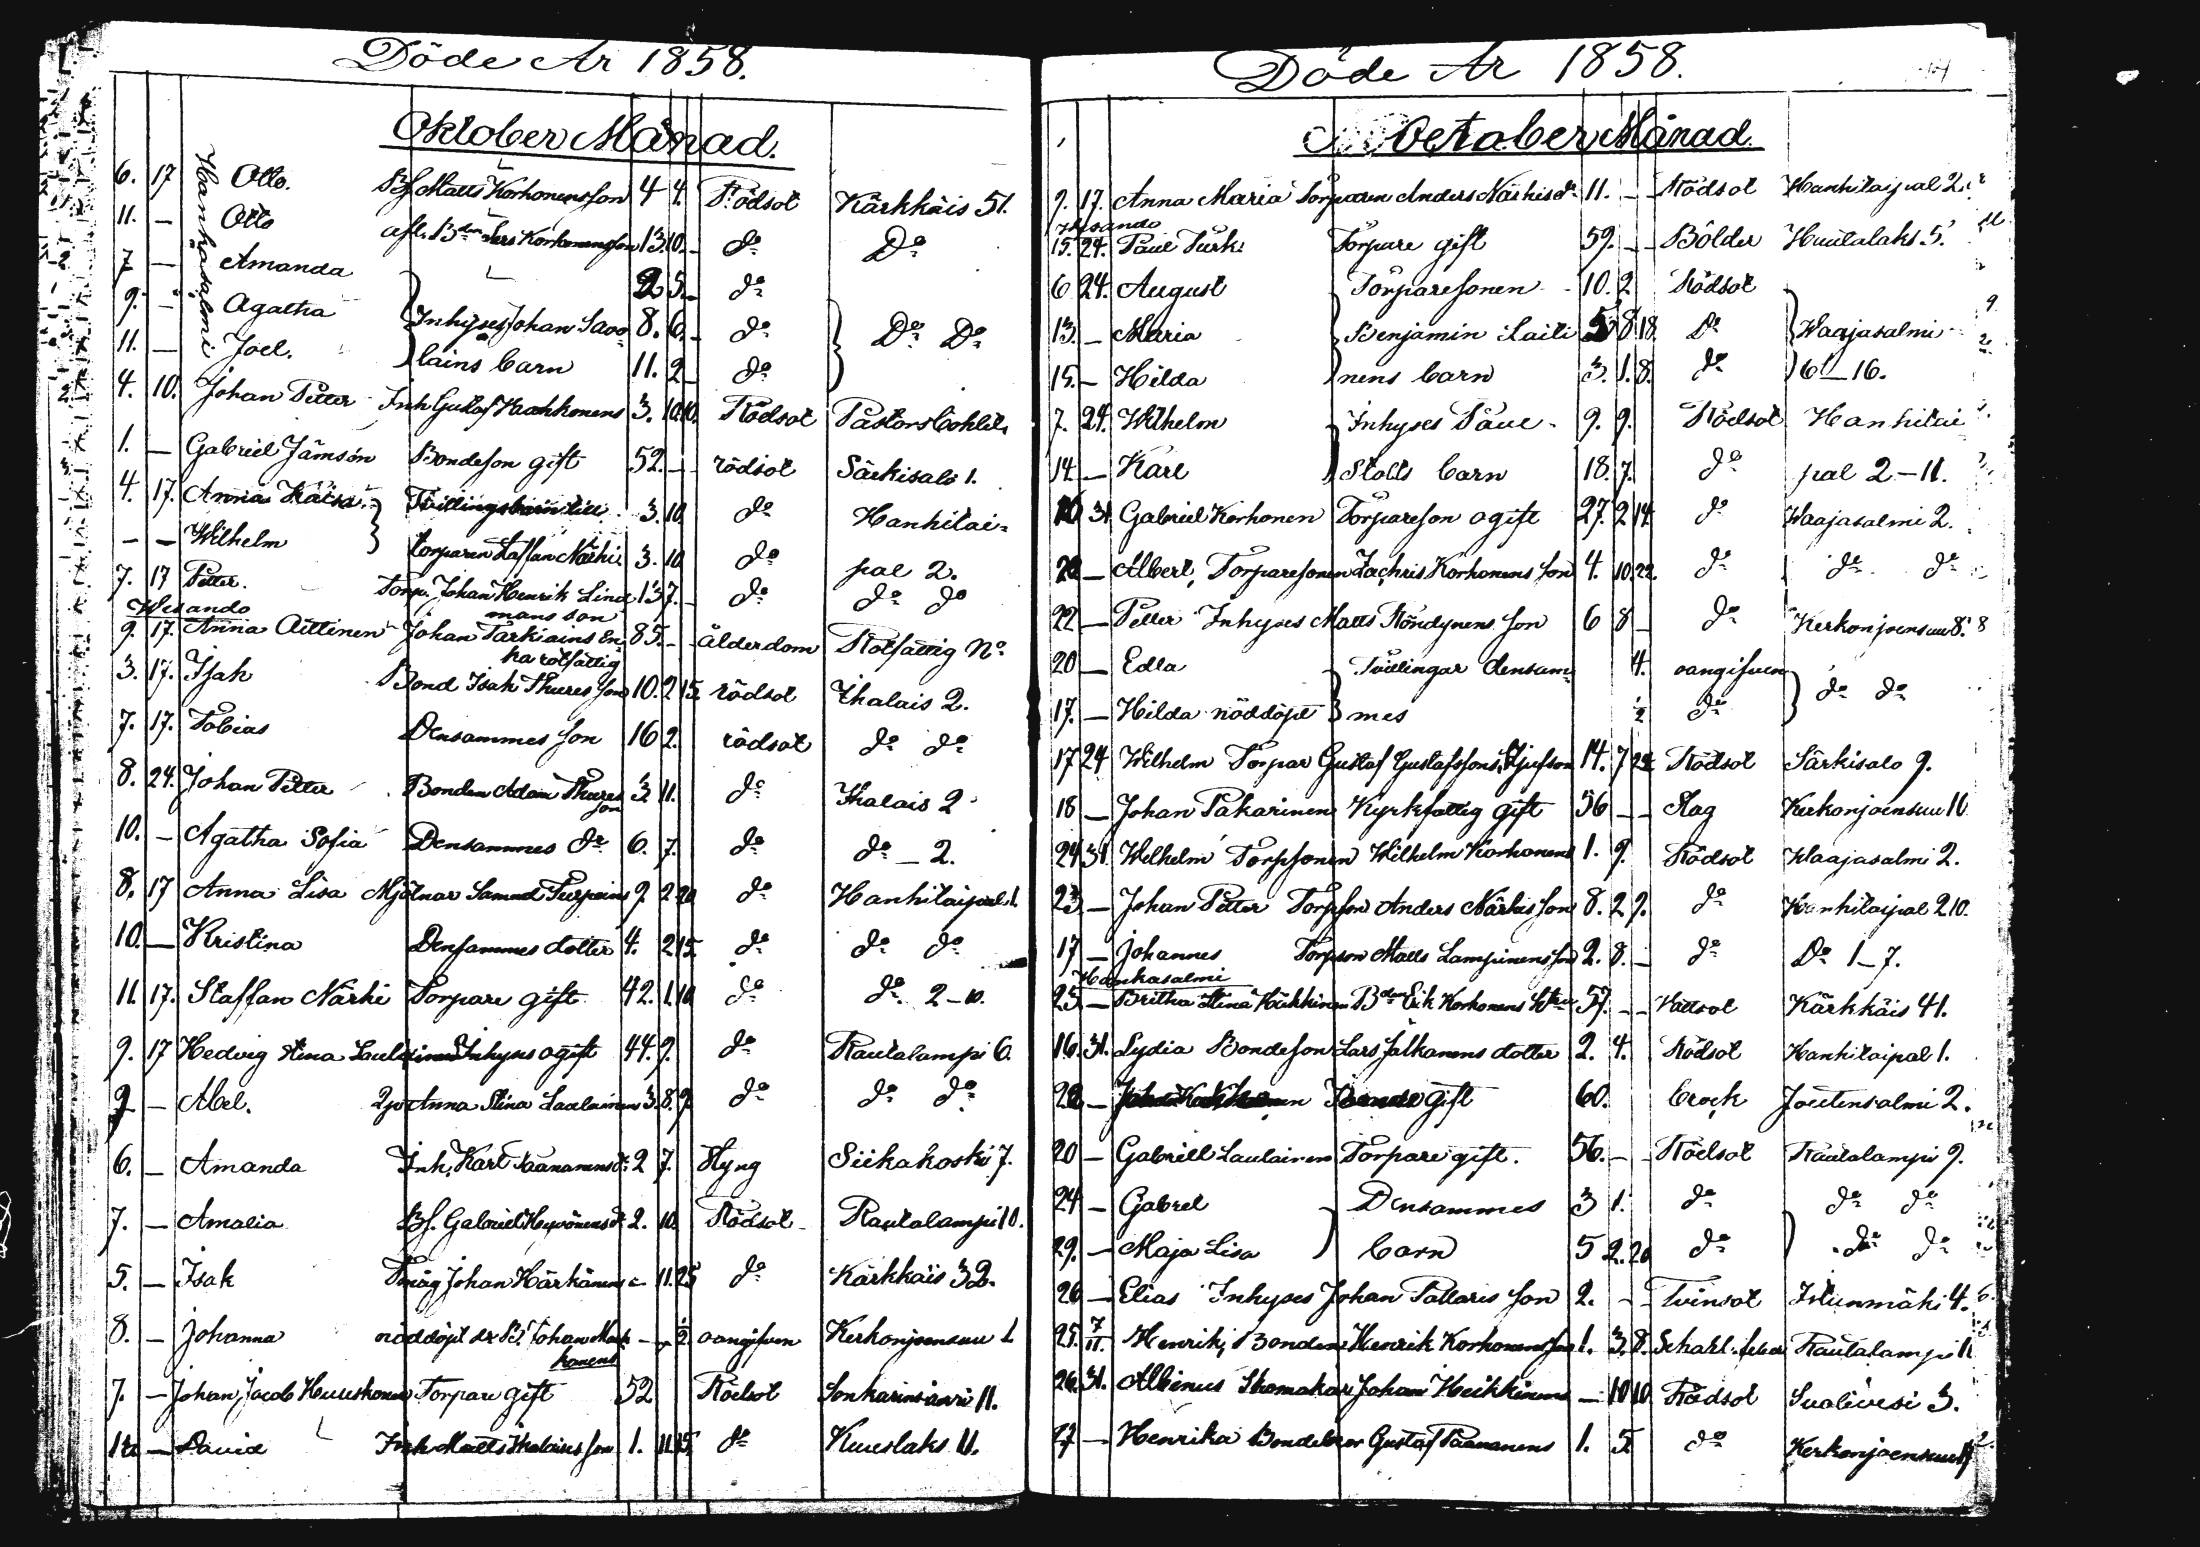 Döde År 1858.
Oktober Månad.
Hankasalmi
6. 17 Otto. Bf Matts Korhonens son 4 4. Rödsot Kärkkäis 51.
11. — Otto afl. Bden Lars Korhonens son 13. 10. — do Do
7 — Amanda 2 5. — do
9. — Agatha Inhyses Johan Savo= 8. 6. — do Do Do
11. — Joel. lains barn 11. 2 — do
4. 10. Johan Petter Inh Gustaf Kaahkonens 3. 10. 10. Rödsot Pastors
1. — Gabriel Jämsén Bondeson gift 52. — — rödsot Särkisalo 1.
4. 17. Anna Kaisa Tvillingsbarn till 3. 10 do Hanhitai=
— — Wilhelm torparen Staffan Närhi 3. 10 do pal 2.
7. 17 Petter. Torp. Johan Henrik Lind 13 7. — do do do
mans son
Wesando
9. 17. Anna Aittinen Johan Tarkiains En= 85. — — ålderdom Rotfattig No
ka rotfattig
3. 17. Isak Bond Isak Thures son 10. 2 15 rödsot Ihalais 2.
7. 17. Tobias Densammes son 16 2. rödsot do do
8. 24. Johan Petter Bonden Adam Thures 3 11. do Ihalais 2
son
10. — Agatha Sofia Densammes do 6. 7. do do — 2.
8. 17 Anna Lisa Mjölnar Samuel Turpeins 9 2 20 do Hanhitaipal 1.
10. — Kristina Densammes dotter 4. 2 15. do do do
11. 17. Staffan Närhi Torpare gift 42. 1. 10. do do 2—10.
9. 17 Hedvig Stina Laulainen Inhyses ogift 44. 9. do Rautalampi 6.
9 — Abel. Anna Stina Laulainen 3. 8. 9 do do do
6. — Amanda Inh. Karl Paananens dr 2 7. Styng Siikakoski 7.
7. — Amalia Bf. Gabriel Hyvönens dr 2. 10. Rödsot Rautalampi 10.
5. — Isak Johan Härkänens — 11. 25 do Kärkkäis 32.
8. — Johanna nöddöpt dr Bf Johan Mark — — 1/2 oangifven Kerkonjoensuu 1
kanens
7. — Johan Jacob Huuskonen Torpare gift 52 Rödsot Sonkarinsaari 11.
12 — David Inh Matts Ihalaises son 1. 11 15 do Kuuslaks 11.
Döde År 1858.
October Månad.
9. 17. Anna Maria Torparen Anders Närhis dr 11. — — Rödsot Hanhitaipal 2.
Wesando
15. 24. Paul Turk. Torpare gift 59. — — Bölder Huutalaks 5.
6 24. August Torparesonen 10. 2 Rödsot
13. — Maria Benjamin Laiti 5 8 18. Do Waajasalmi
15. — Hilda nens barn 3. 1. 8. do 6—16.
7. 24. Wilhelm Inhyses Påve 9. 9. Rödsot Hanhitai
14. — Karl Stolts barn 18. 7. do pal 2—11.
16 31 Gabriel Korhonen Torpareson ogift 27. 2 14 do Waajasalmi 2.
22 — Albert, Torparesonen Zachris Korhonens son 4. 10. 22. do do do
22 — Petter Inhyses Matts Röndynens son 6 8 — do Kerkonjoensuu 8.
20 — Edla Tvillingar densam= 4. oangifven do do
17. — Hilda nöddöpt mes 1/2 do
17 24 Wilhelm Torpar Gustaf Gustafssons Styfson 14. 7 22 Rödsot Särkisalo 9.
18 — Johan Pakarinen Kyrkfattig gift 56 — — Slag Kerkonjoensuu 16
24 31. Wilhelm Torpsonen Wilhelm Korhonens 1. 9. Rödsot Waajasalmi 2.
23 — Johan Petter Torpson Anders Närhis son 8. 2 9. do Hanhitaipal 2 10.
17 — Johannes Torpson Matts Lampinens son 2. 8. — do Do 1—7.
Hankasalmi
25. — Britha Stina Häkkinen Bden Erik Korhonens 57. — — Vattsot Kärkkäis 41.
16. 31. Lydia Bondeson Lars Jalkanens dotter 2. 4. Rödsot Hanhitaipal 1.
22 — gift 60. brock Joutensalmi 2.
20 — Gabriel Laulainen Torpare gift. 56. — — Rödsot Rautalampi 9.
24 — Gabriel Densammes 3 1. do do do
29. — Maja Lisa barn 5 2. 20 do do do
26 — Elias Inhyses Johan Pallaris son 2. — — Tvinsot Istunmäki 4.
25. 7/11. Henrik, Bonden Henrik Korhonens son 1. 3. 8. Rautalampi 11
26. 31. Albinus Skomakar Johan Heikkinens — 10 10. Rödsot Sualivesi 3.
27 — Henrika Gustaf Paananens 1. 5 do Kerkonjoensuu